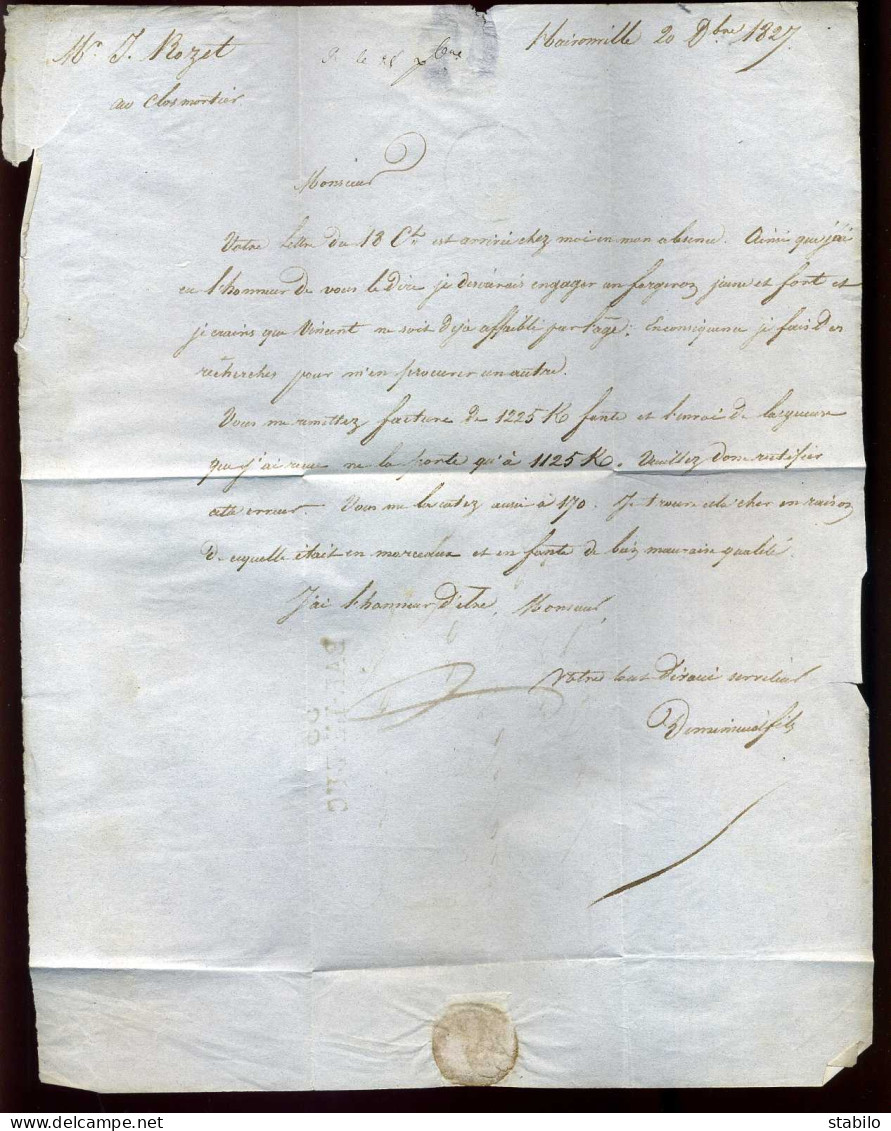 Mr. J. Rozet
au Closmortier.
R. le 28 Xbre
Haironville 20 Dbre 1827.
Monsieur
Votre lettre du 18 Ct. est arrivée chez moi en mon absence. Ainsi que j'ai
eu l'honneur de vous le dire je desirerais engager un forgeron jeune et fort et
je crains que Vincent ne soit deja affaibli par l'age: En consequence je fais des
recherches pour m'en procurer un autre.
Vous me remettez facture de 1225 K fonte et l'envoi de la gueuse
que j'ai reçue ne la porte qu'à 1125 K. Veuillez donc rectifier
cette erreur. Vous me la cotez aussi à 170. Je trouve cela cher en raison
de ce qu'elle était en morceaux et en fonte de bien mauvaise qualité.
J'ai l'honneur d'etre, Monsieur,
Votre tout dévoué serviteur
fils
BAR-LE-DUC
stabilo